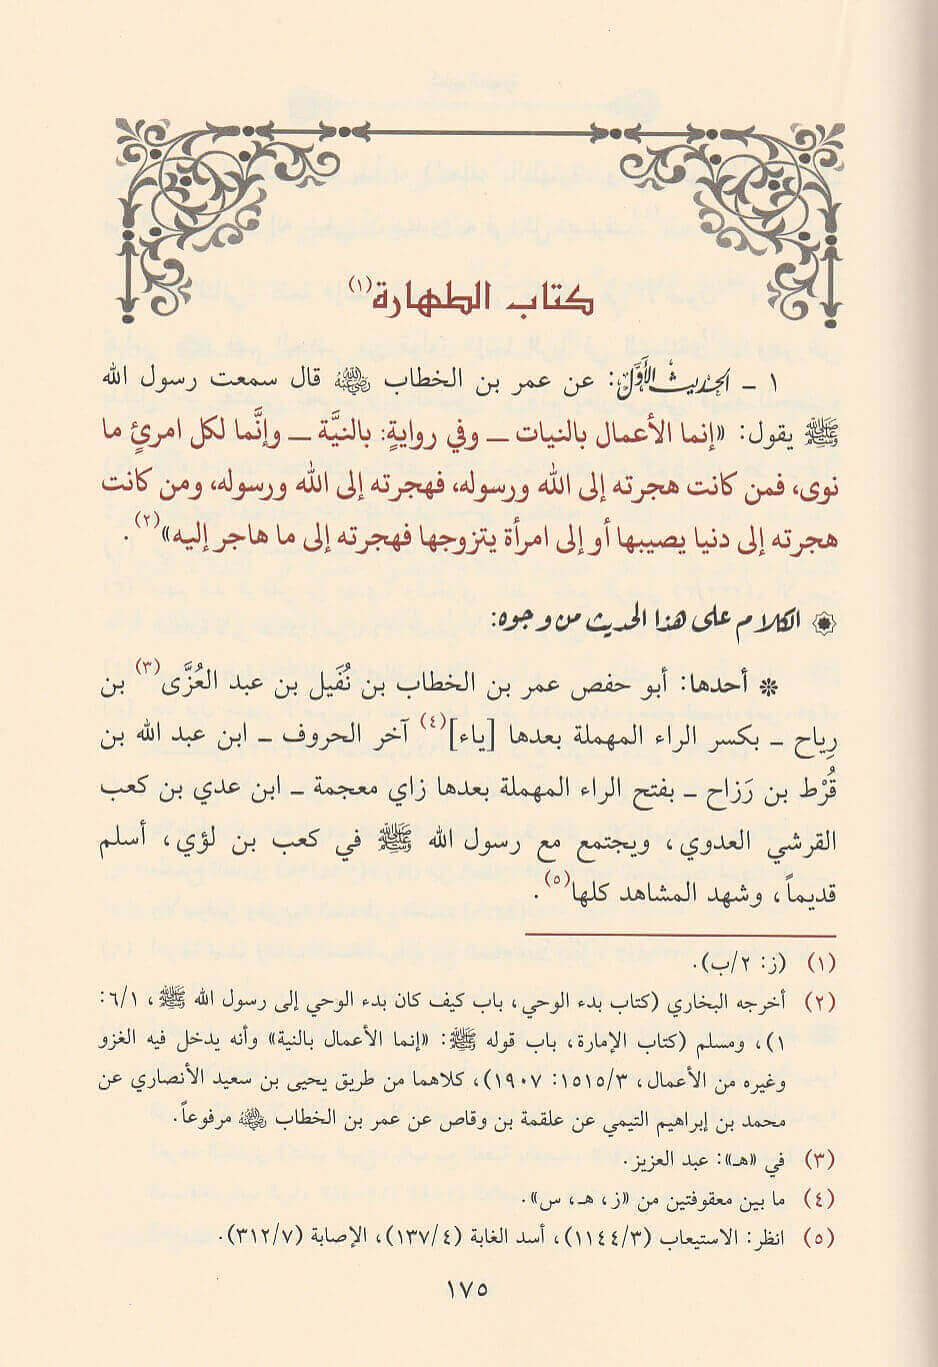 كتاب الطهارة(١)
١ ـ الحديث الأول: عن عمر بن الخطاب رضي الله عنه قال سمعت رسول الله
ﷺ يقول: «إنما الأعمال بالنيات ـ وفي روايةٍ: بالنيَّة ـ وإنَّما لكل امرئٍ ما
نوى، فمن كانت هجرته إلى الله ورسوله، فهجرته إلى الله ورسوله، ومن كانت
هجرته إلى دنيا يصيبها أو إلى امرأة يتزوجها فهجرته إلى ما هاجر إليه»(٢).
الكلام على هذا الحديث من وجوه:
* أحدها: أبو حفص عمر بن الخطاب بن نُفَيل بن عبد العُزَّى(٣) بن
رِياح ـ بكسر الراء المهملة بعدها [ياء](٤) آخر الحروف ـ ابن عبد الله بن
قُرْط بن رَزاح ـ بفتح الراء المهملة بعدها زاي معجمة ـ ابن عدي بن كعب
القرشي العدوي، ويجتمع مع رسول الله ﷺ في كعب بن لؤي، أسلم
قديماً، وشهد المشاهد كلها(٥).
(١) (ز: ٢/ب).
(٢) أخرجه البخاري (كتاب بدء الوحي، باب كيف كان بدء الوحي إلى رسول الله ﷺ، ٦/١:
١)، ومسلم (كتاب الإمارة، باب قوله ﷺ: «إنما الأعمال بالنية» وأنه يدخل فيه الغزو
وغيره من الأعمال، ١٥١٥/٣: ١٩٠٧)، كلاهما من طريق يحيى بن سعيد الأنصاري عن
محمد بن إبراهيم التيمي عن علقمة بن وقاص عن عمر بن الخطاب رضي الله عنه مرفوعاً.
(٣) في «هـ»: عبد العزيز.
(٤) ما بين معقوفتين من «ز، هـ، س».
(٥) انظر: الاستيعاب (١١٤٤/٣)، أسد الغابة (١٣٧/٤)، الإصابة (٣١٢/٧).
١٧٥